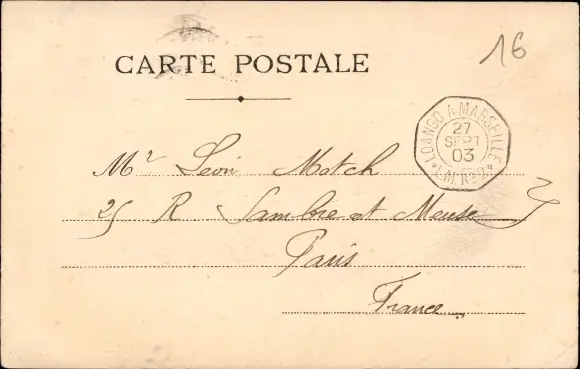 16
CARTE POSTALE
LOANGO A MARSEILLE
27
SEPT
03
L.N. Nº 2
Mr Léon Motch
25 R Sambre et Meuse
Paris
France